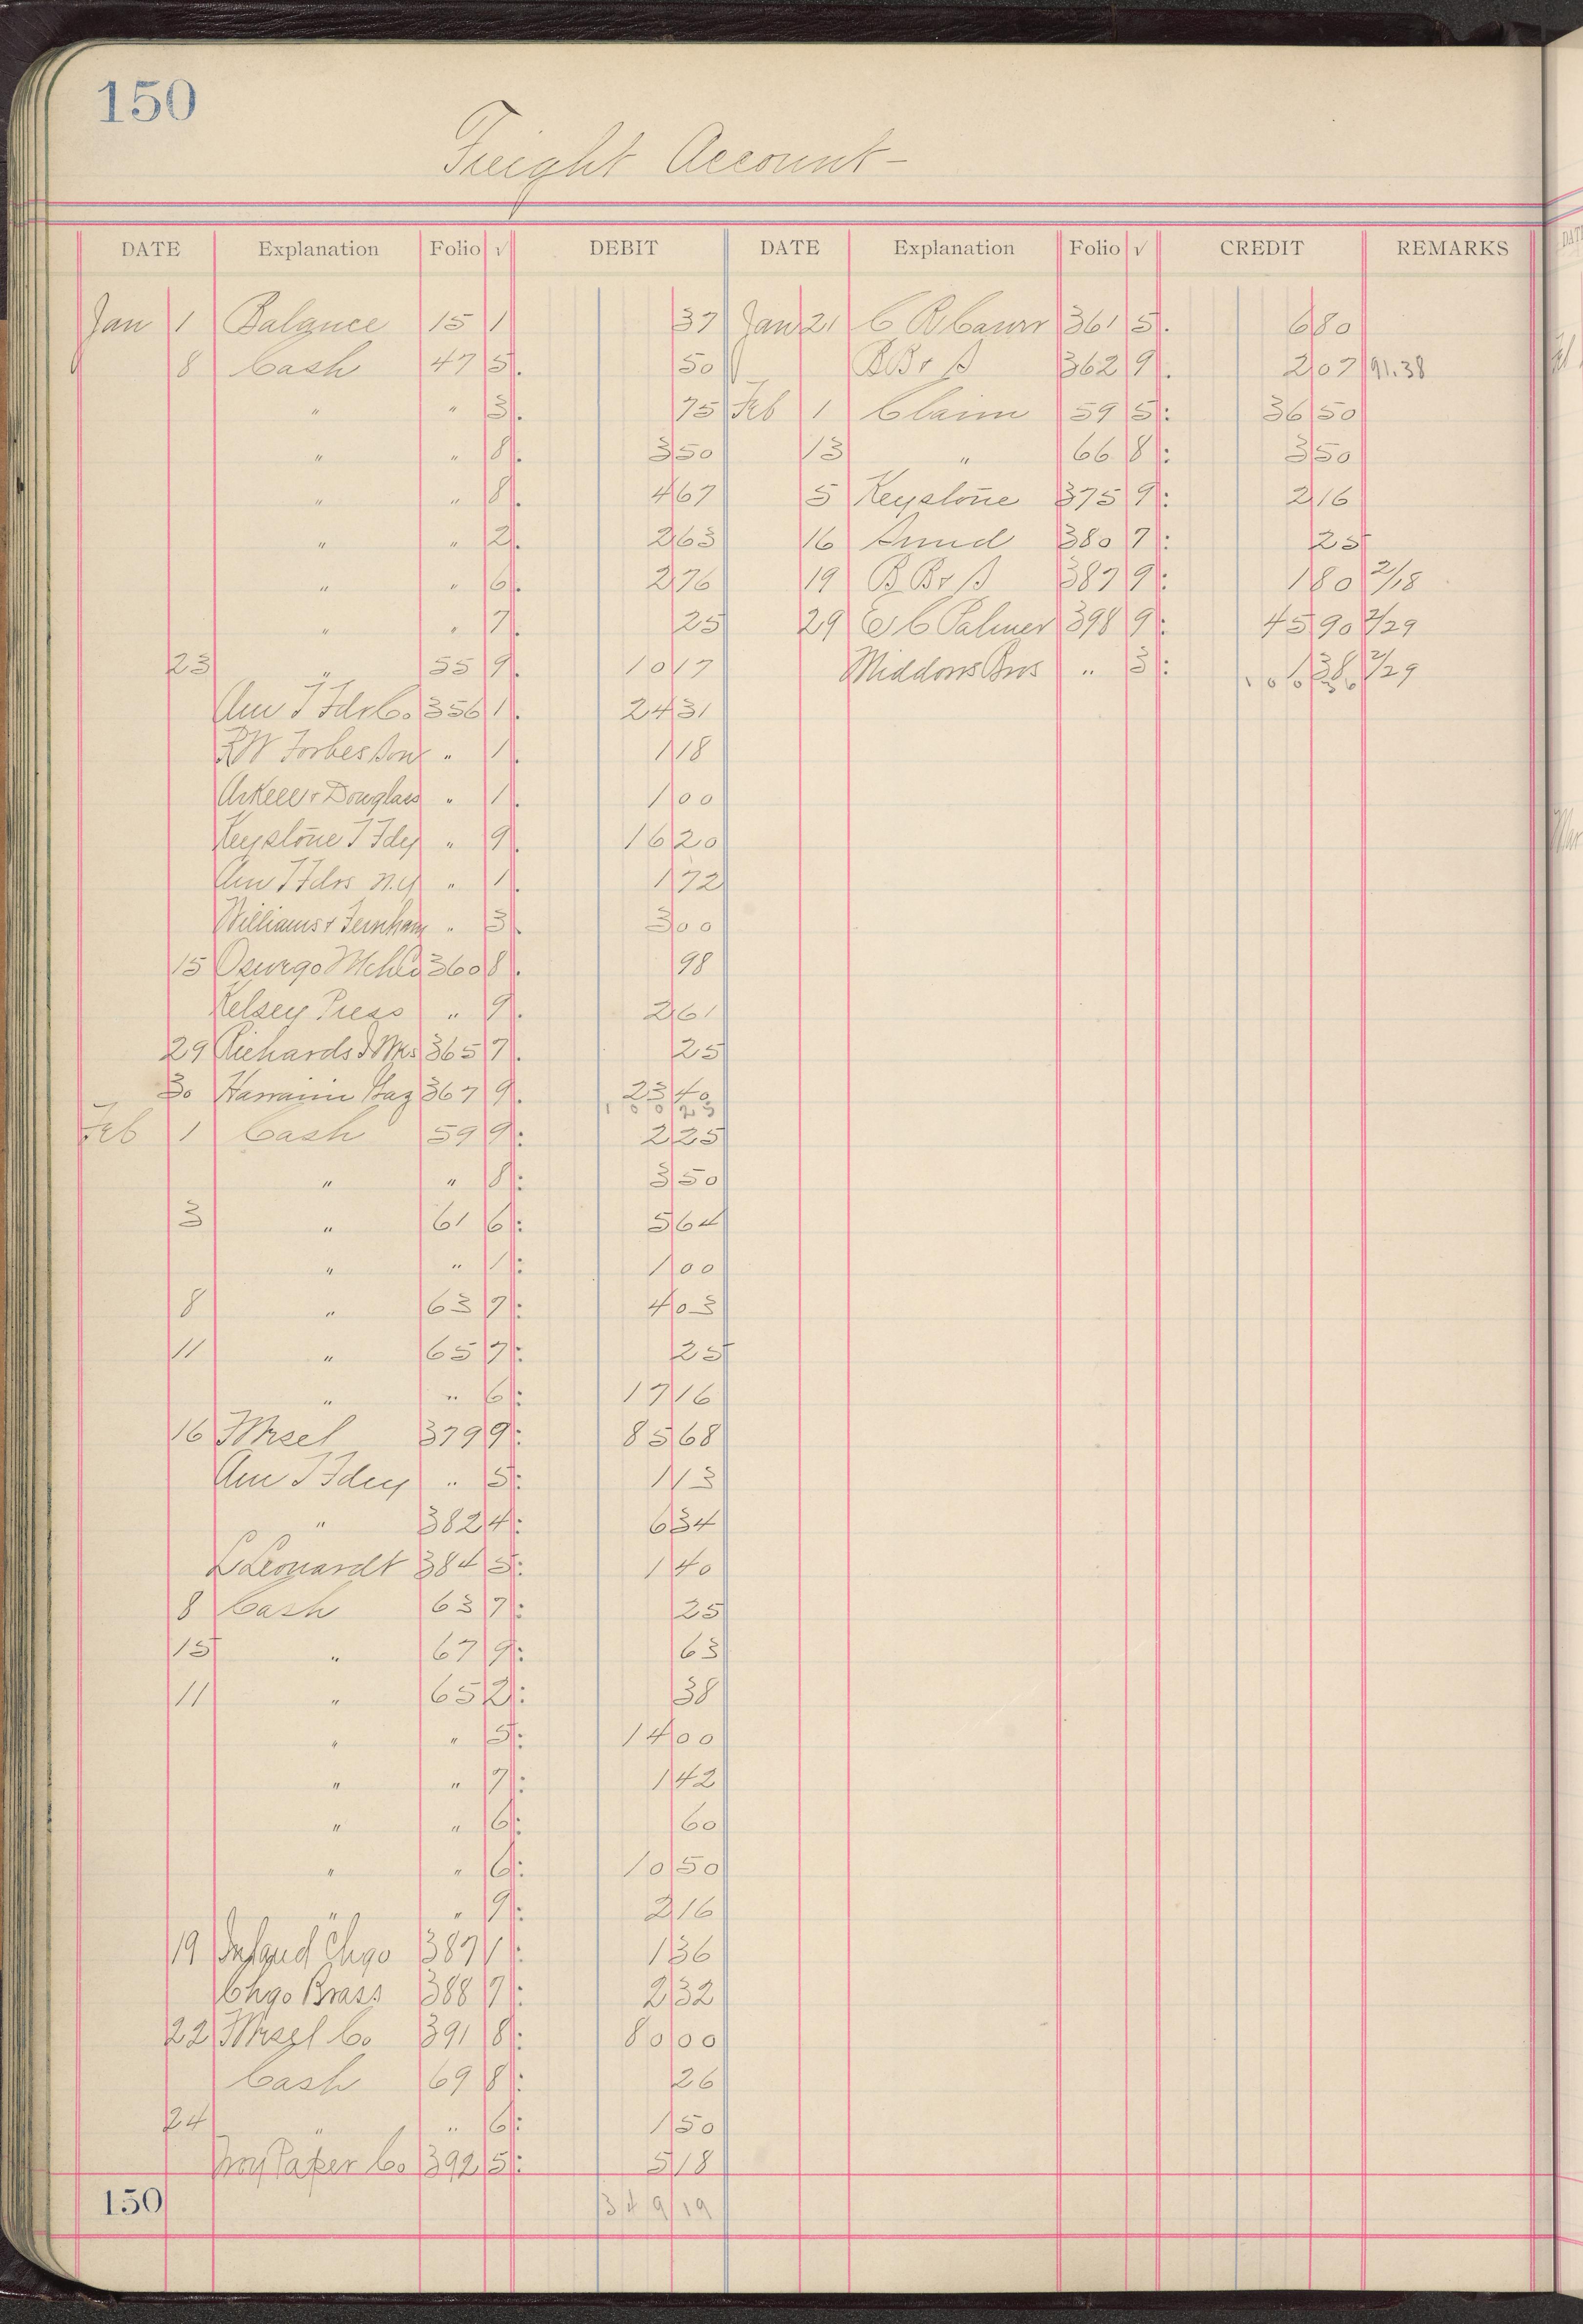 150
Freight Account —
DATE Explanation Folio √ DEBIT DATE Explanation Folio √ CREDIT REMARKS
Jan 1 Balance 15 1 37 Jan 21 C R 361 5. 6 80
8 Cash 47 5. 50 B B & S 362 9. 2 07 91.38
" " 3. 75 Feb 1 Claim 59 5: 36 50
" " 8. 3 50 13 " 66 8: 3 50
" " 8. 4 67 5 Keystone 375 9: 2 16
" " 2. 2 63 16 380 7: 25
" " 6. 2 76 19 B B & S 387 9: 1 80 2/18
" " 7. 25 29 E C Palmer 398 9: 45 90 2/29
23 " 55 9. 10 17 Middows Bros " 3: 1 38 2/29
Am T Fdrs Co. 356 1. 24 31
R W Forbes Son " 1. 1 18
Arkell & Douglass " 1. 1 00
Keystone T Fdy " 9. 16 20
Am T Fdrs N.Y " 1. 1 72
Williams & " 3. 3 00
15 Oswego 360 8. 98
Kelsey Press " 9. 2 61
29 Richards 365 7. 25
30 367 9. 23 40
100 23
Feb 1 Cash 59 9: 2 25
" " 8: 3 50
3 " 61 6: 5 64
" " 1: 1 00
8 " 63 7: 4 03
11 " 65 7: 25
" " 6: 17 16
16 379 9: 85 68
Am T Fdry " 5: 1 13
" 382 4: 6 34
L Leonardt 384 5: 1 40
8 Cash 63 7: 25
15 " 67 9: 63
11 " 65 2: 38
" " 5: 14 00
" " 7: 1 42
" " 6: 60
" " 6: 10 50
" " 9: 2 16
19 Chgo 387 1: 1 36
Chgo Brass 388 7: 2 32
22 Co 391 8: 80 00
Cash 69 8: 26
24 " " 6: 1 50
Troy Paper Co 392 5: 5 18
150 349 19